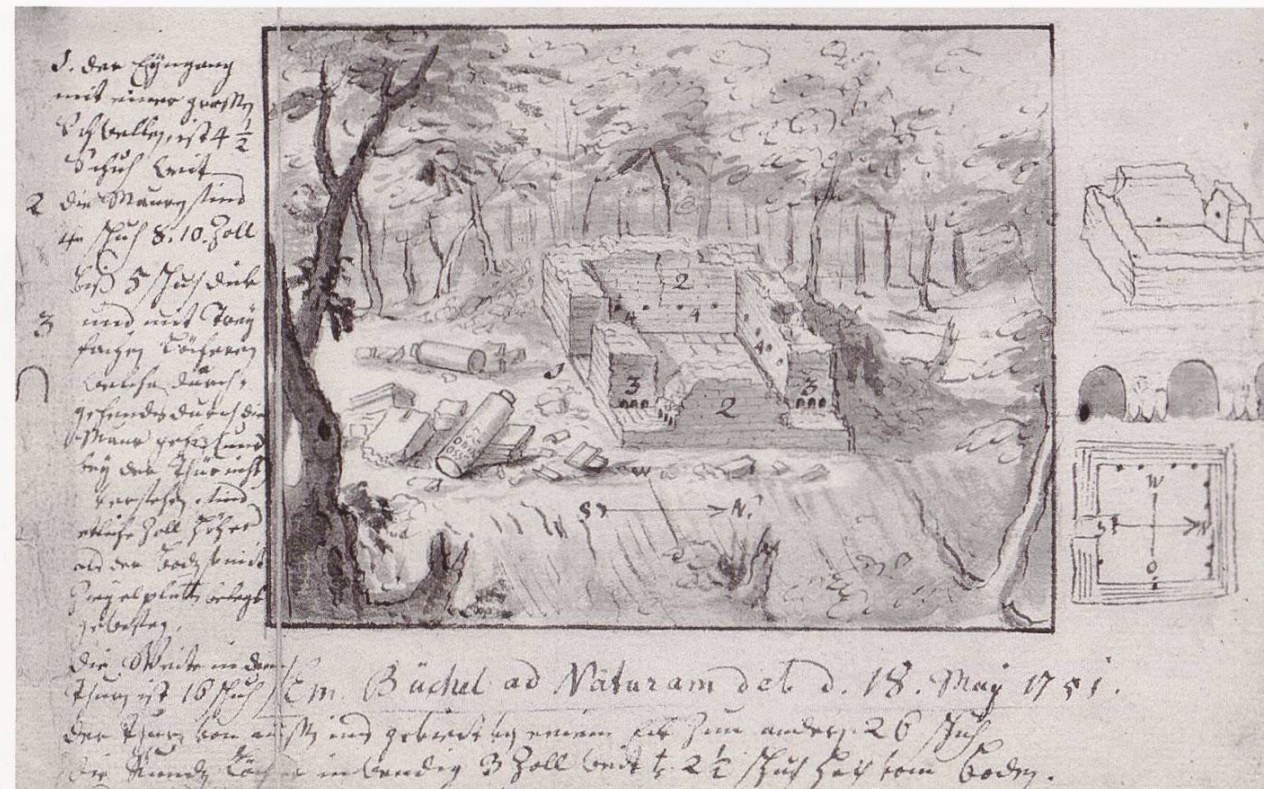 1. der Eyngang
mit einer grossen
Schwellen ist 4 1/2
Schuh weit
2 die Mauren sind
4 schuh 8. 10. Zoll
biß 5 schuh dick
3 und mit
Löcheren
welche durch-
gehendes durch die
Maur gehen
bey der
sind
etliche Zoll höher
als der Boden so mit
Ziegelplatten belegt
gewesen.
die Weite in dem
Thurn ist 16 schuh
Em. Büchel ad Naturam del. d. 18. May 1751.
der Thurn von aussen ins gevierte von einem Eck zum andern 26 schuh
die Runde Löcher inwendig 3 Zoll weit 2 1/2 schuh hoch vom Boden.
2
4
4
4
1
3
2
3
W
S
N.
W
S
N
O